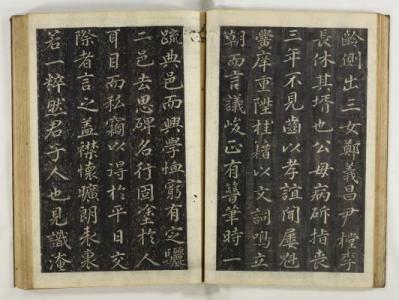 齡側出三女鄭義昌尹樘李
長休其壻也公母病斫指喪
三年不見齒以孝誼聞屢魁
黌庠重陞桂籍以文詞鳴立
朝而言議峻正有簪筆時一
疏典邑而興學恤窮有定驪
二邑去思碑名行固塗於人
耳目而私竊以得於平日交
際者言之蓋襟懷曠朗表裏
若一粹然君子人也見識淹